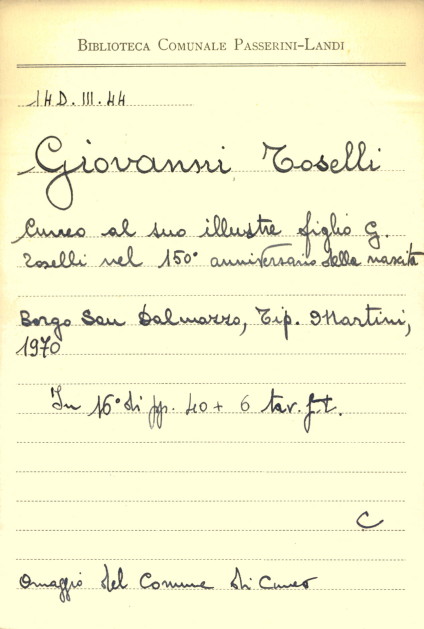 BIBLIOTECA COMUNALE PASSERINI-LANDI
14D.III.44
Giovanni Toselli
Cuneo al suo illustre figlio G.
Toselli nel 150° anniversario della nascita
Borgo San Dalmazzo, Tip. Martini,
1970
In 16° di pp. 40 + 6 tav. f.t.
C
Omaggio del Comune di Cuneo